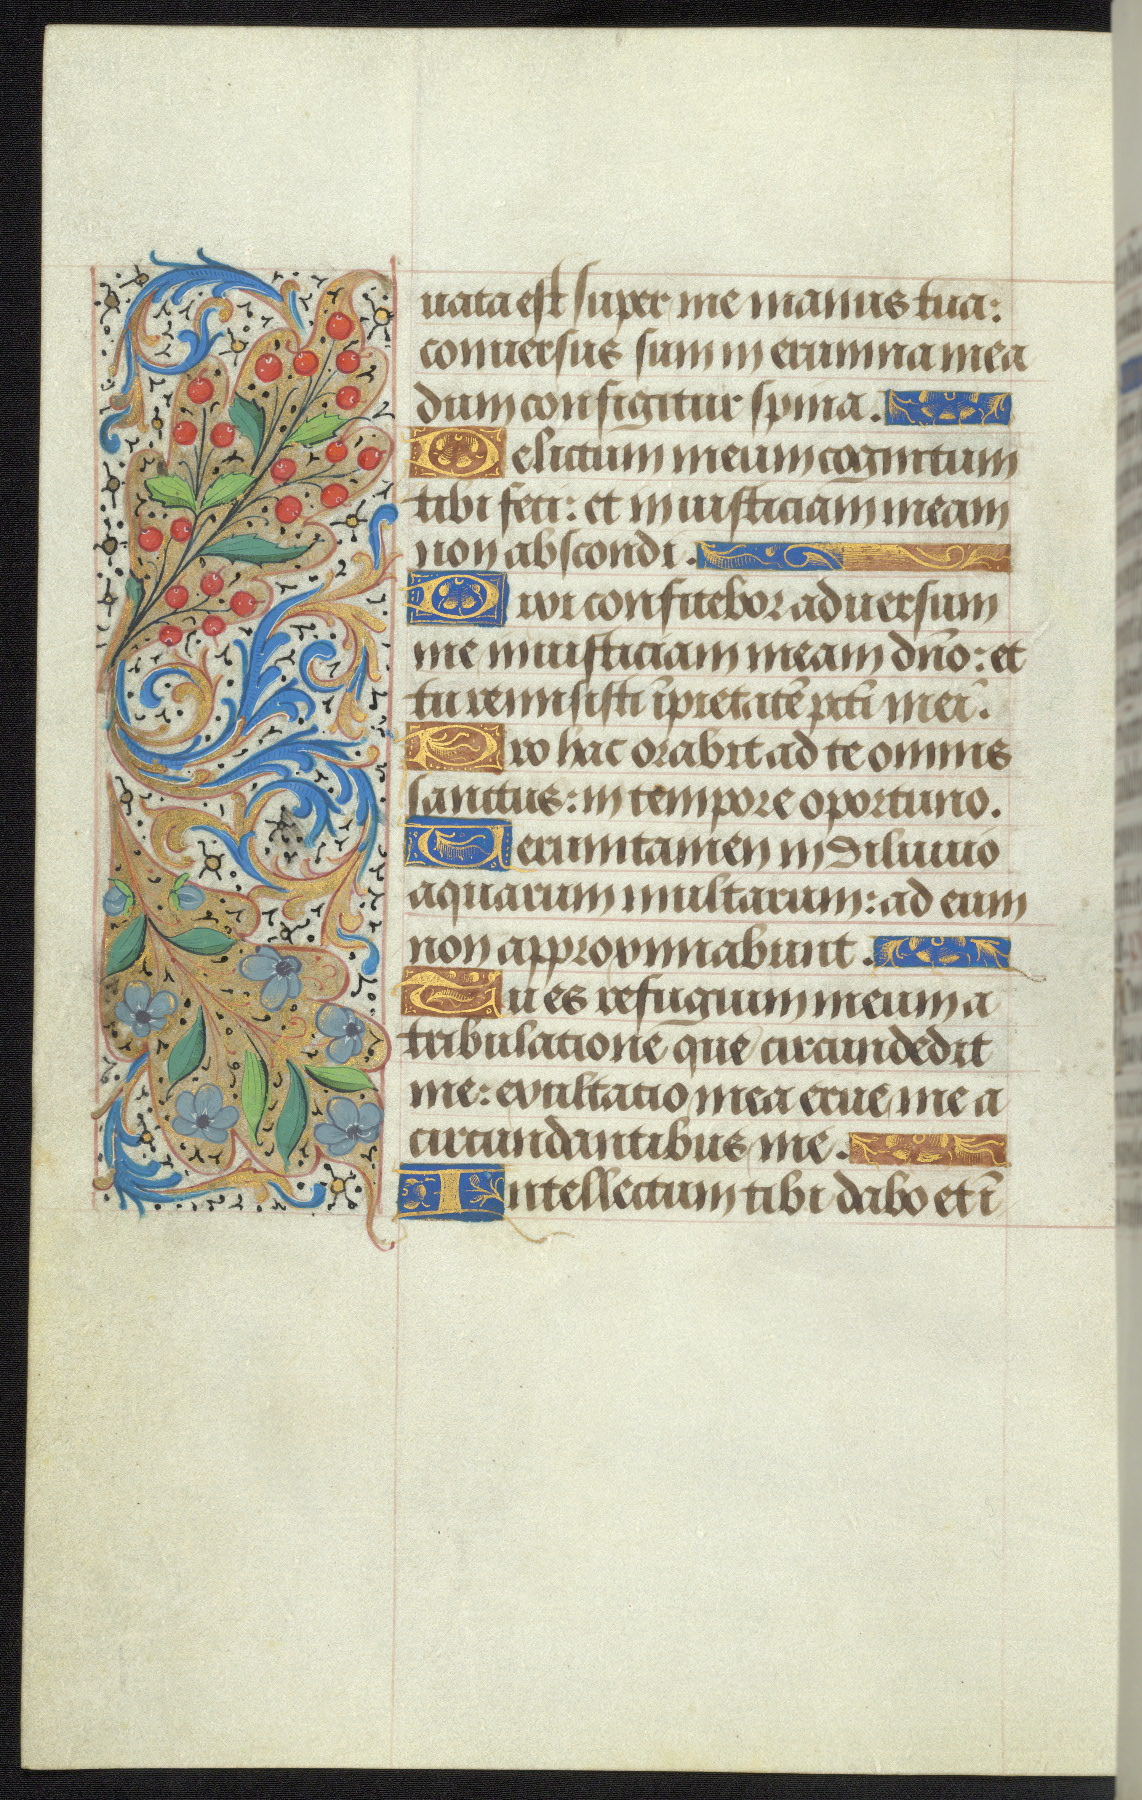 uata est super me manus tua:
conuersus sum in erumna mea
dum configitur spina.
Delictum meum cognitum
tibi feci: et iniusticiam meam
non abscondi.
Dixi confitebor aduersum
me iniusticiam meam dño: et
tu remisisti ĩpietatẽ pcti mei.
Pro hac orabit ad te omnis
sanctus: in tempore oportuno.
Verumtamen in diluuio
aquarum multarum: ad eum
non approximabunt.
Tu es refugium meum a
tribulatione que circundedit
me: exultatio mea erue me a
circundantibus me.
Intellectum tibi dabo et ĩ